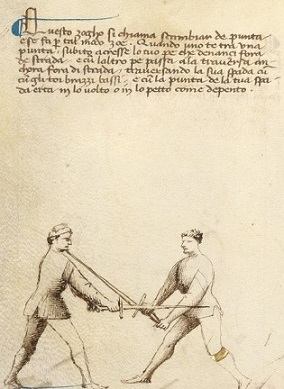 Questo zogho si chiama scambiar de punta
e se fa p tal modo zoe. Quando uno te tra una
punta subito acresse lo tuo pe che denanci fora
de strada e cu laltro pe passa ala traversa an
chora fora di strada traversando la sua spada cu
cu gli toi brazzi bassi e cu la punta de la tua spa
da erta in lo volto o in lo petto come depento.